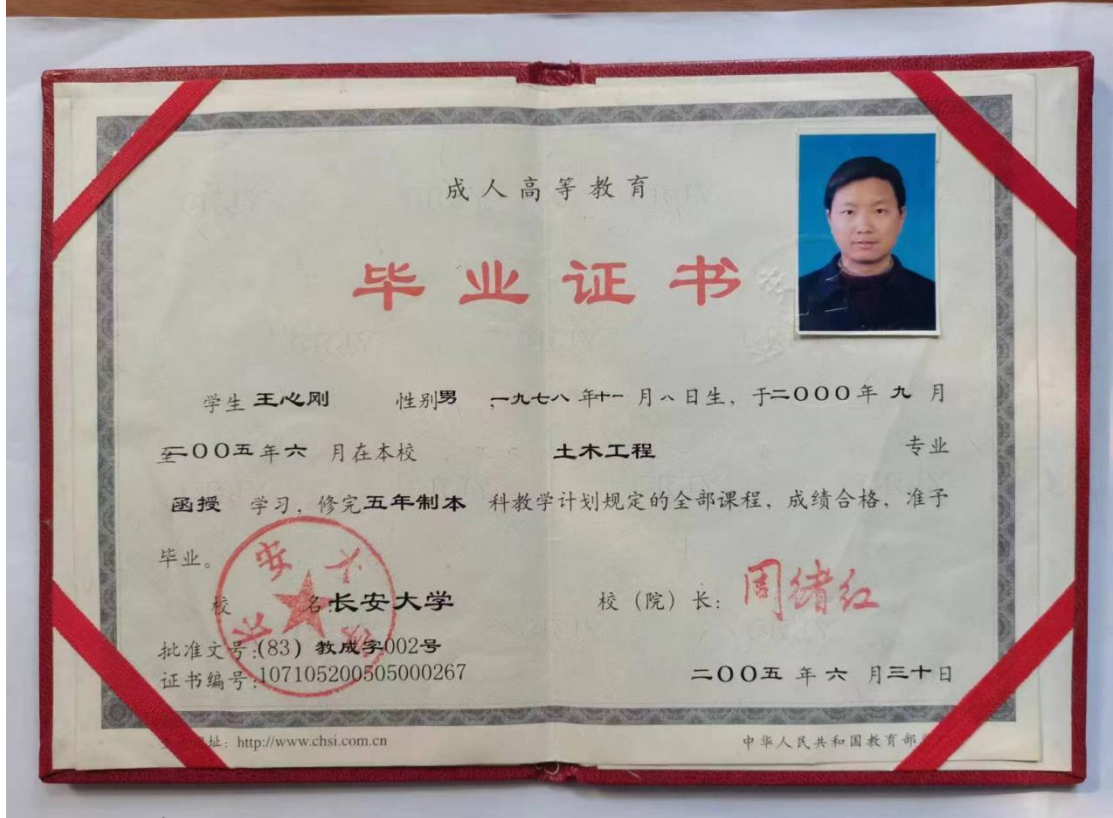 成人高等教育
毕业证书
学生 王心刚 性别男 ,一九七八年十一月八日生，于二〇〇〇年九月
至二〇〇五年六月在本校 土木工程 专业
函授 学习，修完五年制本 科教学计划规定的全部课程，成绩合格，准予
毕业。
校 名 长安大学 校（院）长：周绪红
批准文号:(83) 教成字002号
证书编号:107105200505000267 二〇〇五年六月三十日
址：http://www.chsi.com.cn 中华人民共和国教育部
长安大学